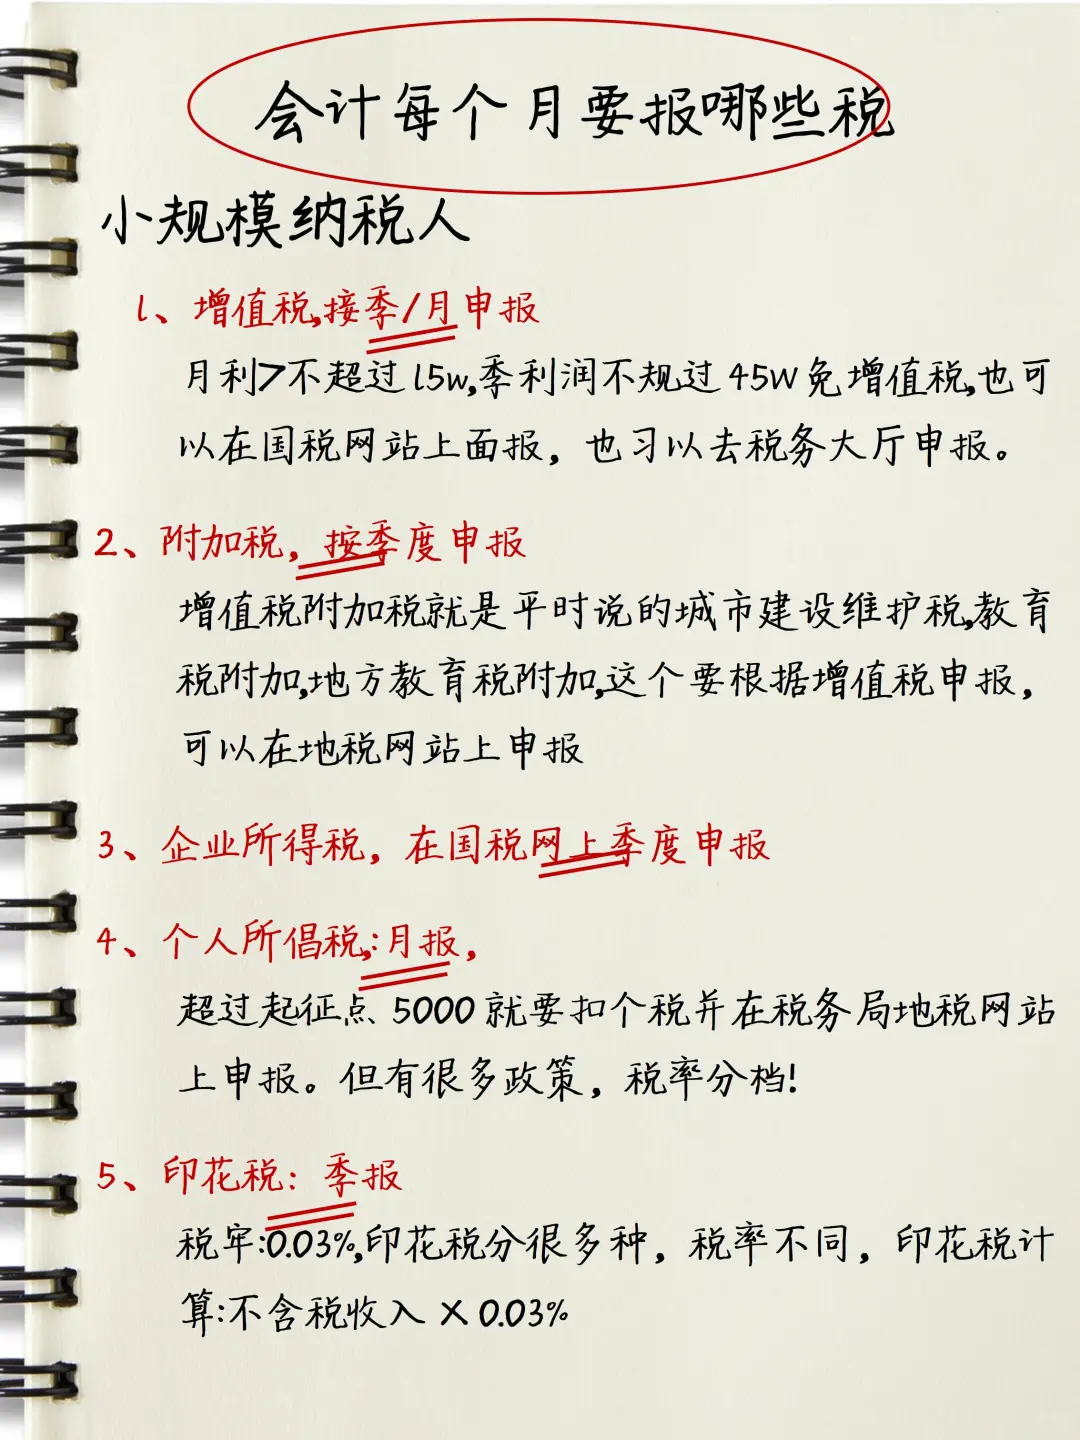 会计每个月要报哪些税
小规模纳税人
1、增值税,接季/月申报
月利7不超过15w,季利润不规过45W免增值税,也可
以在国税网站上面报，也习以去税务大厅申报。
2、附加税，按季度申报
增值税附加税就是平时说的城市建设维护税,教育
税附加,地方教育税附加,这个要根据增值税申报，
可以在地税网站上申报
3、企业所得税，在国税网上季度申报
4、个人所倡税,:月报，
超过起征点、5000就要扣个税并在税务局地税网站
上申报。但有很多政策，税率分档!
5、印花税：季报
税牢:0.03%,印花税分很多种，税率不同，印花税计
算:不含税收入×0.03%